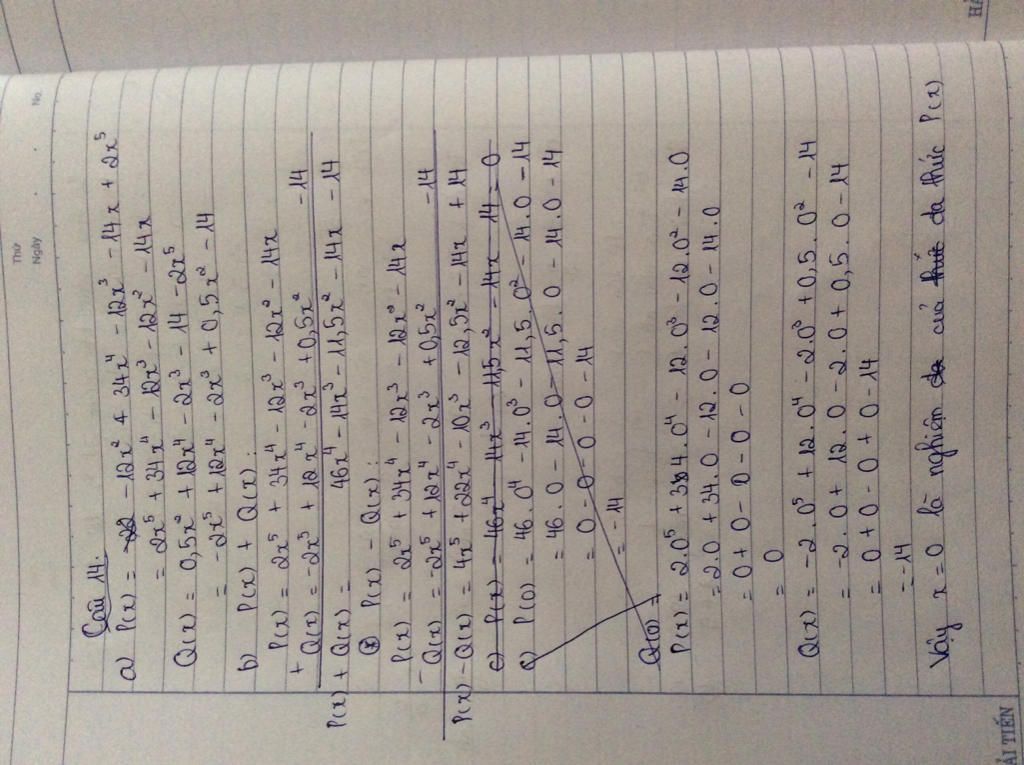 Thứ
Ngày
No.
Câu 14.
a) P(x) = -12x² + 34x⁴ - 12x³ - 14x + 2x⁵
= 2x⁵ + 34x⁴ - 12x³ - 12x² - 14x
Q(x) = 0,5x² + 12x⁴ - 2x³ - 14 - 2x⁵
= -2x⁵ + 12x⁴ - 2x³ + 0,5x² - 14
b) P(x) + Q(x):
P(x) = 2x⁵ + 34x⁴ - 12x³ - 12x² - 14x
+ Q(x) = -2x⁵ + 12x⁴ - 2x³ + 0,5x² - 14
P(x) + Q(x) = 46x⁴ - 14x³ - 11,5x² - 14x - 14
⊛ P(x) - Q(x):
P(x) = 2x⁵ + 34x⁴ - 12x³ - 12x² - 14x
- Q(x) = -2x⁵ + 12x⁴ - 2x³ + 0,5x² - 14
P(x) - Q(x) = 4x⁵ + 22x⁴ - 10x³ - 12,5x² - 14x + 14
c) P(x) = 46x⁴ - 14x³ - 11,5x² - 14x - 14 = 0
c) P(0) = 46.0⁴ - 14.0³ - 11,5.0² - 14.0 - 14
= 46.0 - 14.0 - 11,5.0 - 14.0 - 14
= 0 - 0 - 0 - 0 - 14
= -14
Q(0) =
P(x) = 2.0⁵ + 34.0⁴ - 12.0³ - 12.0² - 14.0
= 2.0 + 34.0 - 12.0 - 12.0 - 14.0
= 0 + 0 - 0 - 0 - 0
= 0
Q(x) = -2.0⁵ + 12.0⁴ - 2.0³ + 0,5.0² - 14
= -2.0 + 12.0 - 2.0 + 0,5.0 - 14
= 0 + 0 - 0 + 0 - 14
= -14
Vậy x = 0 là nghiệm đa của thức đa thức P(x)
ẢI TIẾN
HẢ